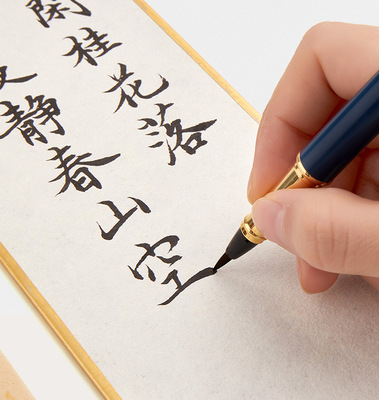 閑桂花落
静春山空